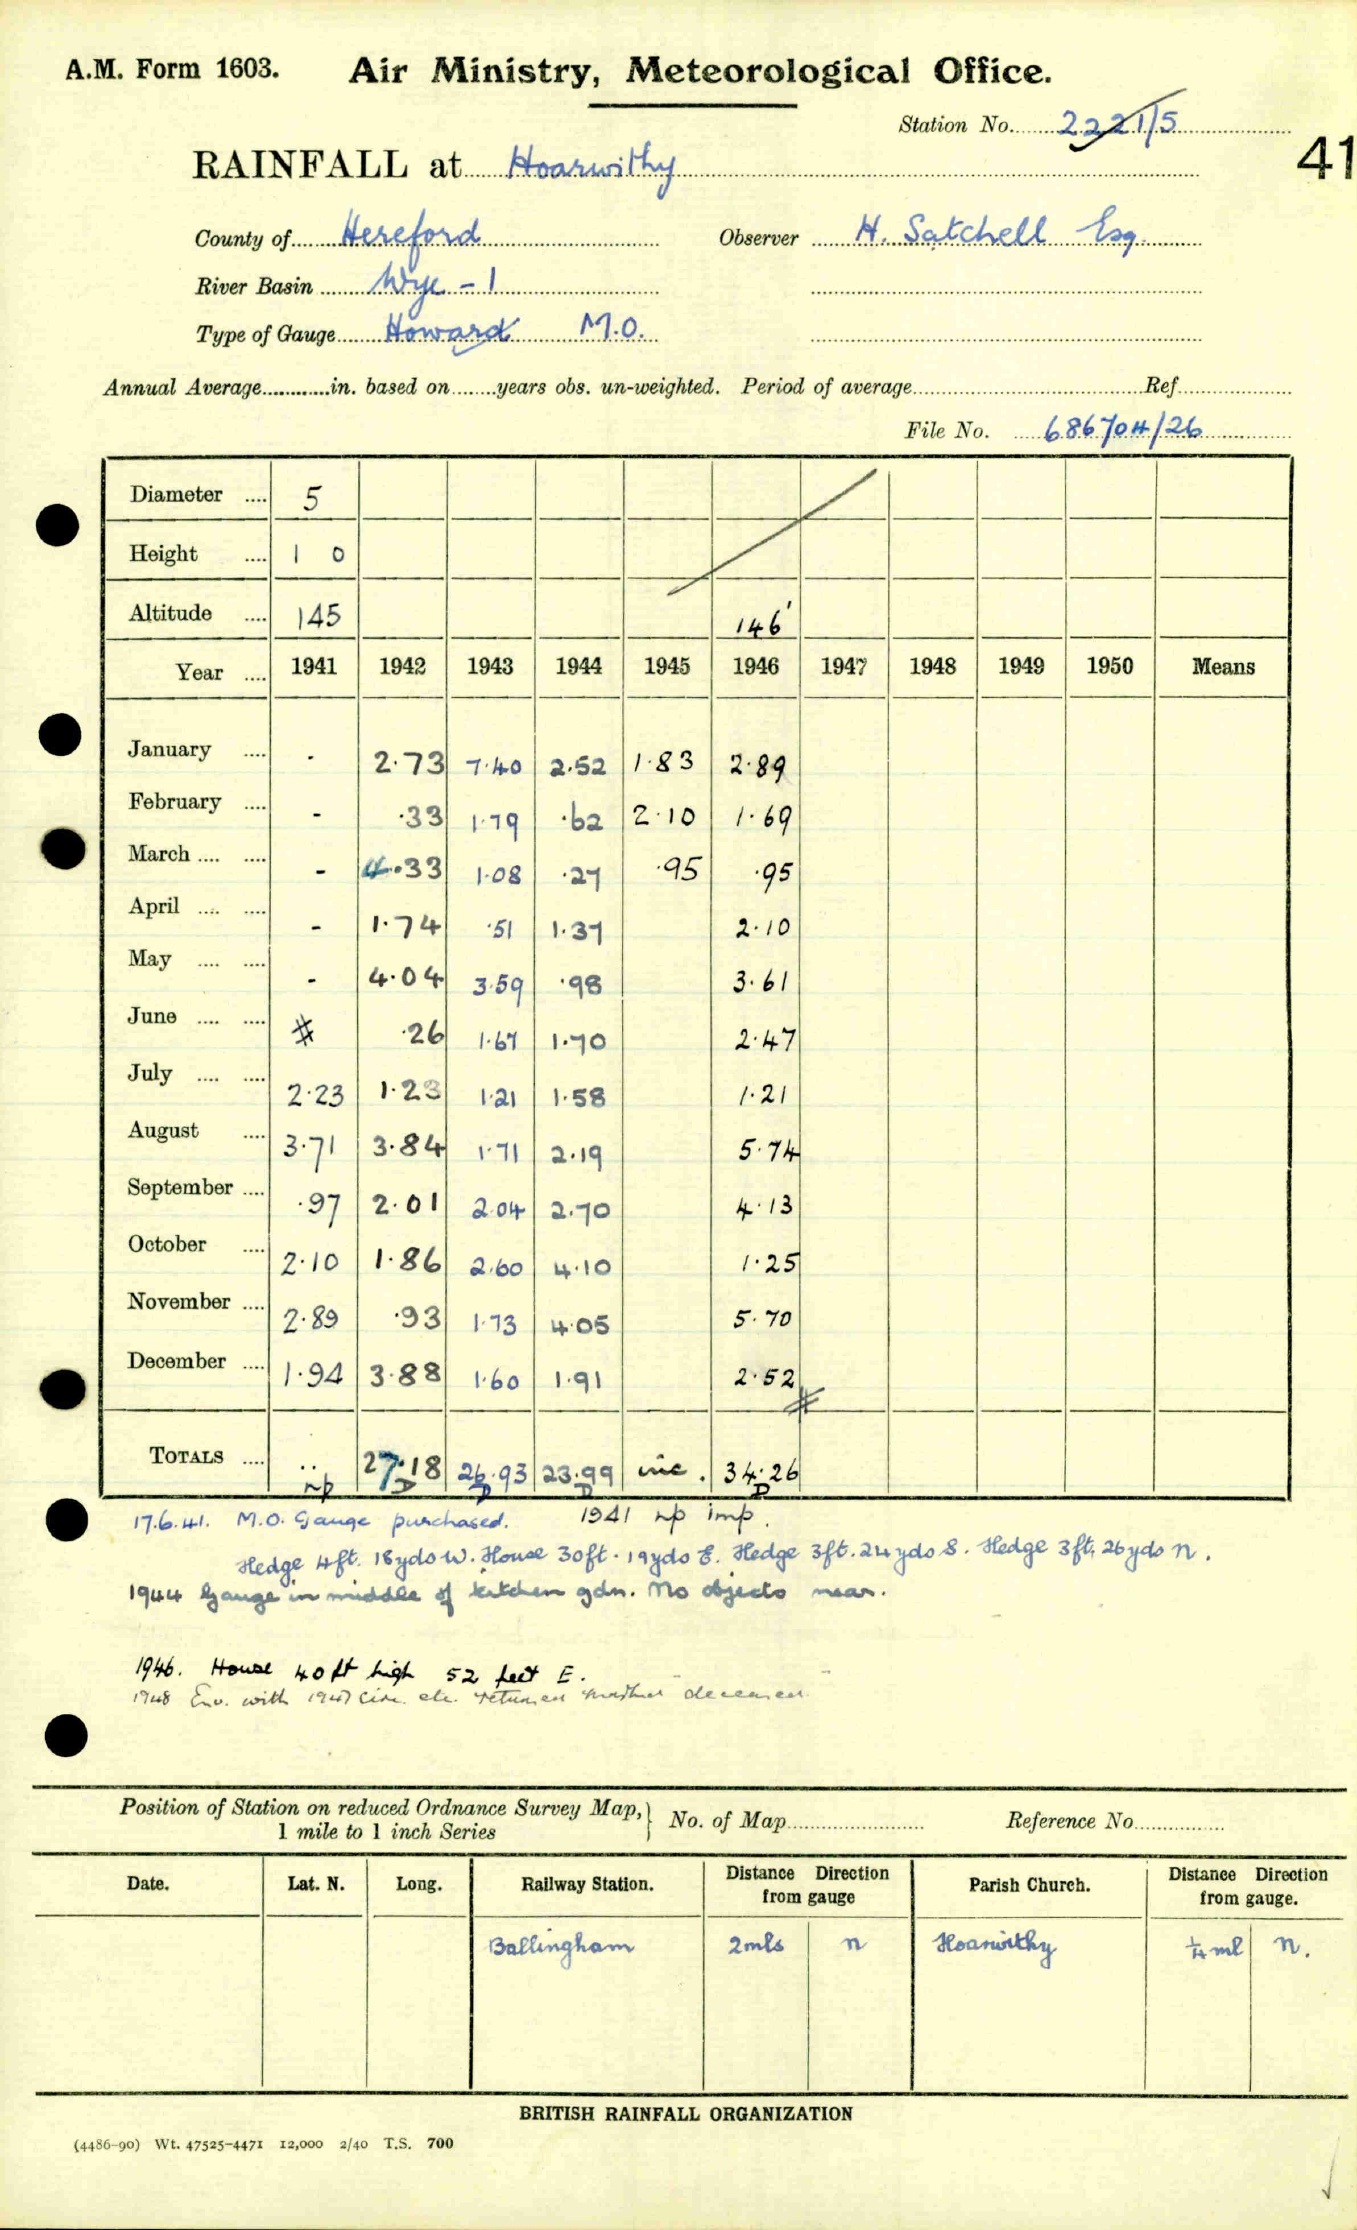 A.M. Form 1603. Air Ministry, Meteorological Office.
Station No. 2221/5
41
RAINFALL at Hoarwithy
County of Hereford Observer H. Satchell Esq.
River Basin Wye - 1
Type of Gauge Howard M.O.
Annual Average in. based on years obs. un-weighted. Period of average Ref
File No. 686704/26
Diameter 5
Height 1 0
Altitude 145 146'
Year 1941 1942 1943 1944 1945 1946 1947 1948 1949 1950 Means
January - 2.73 7.40 2.52 1.83 2.89
February - .33 1.79 .62 2.10 1.69
March - 4.33 1.08 .27 .95 .95
April - 1.74 .51 1.37 2.10
May - 4.04 3.59 .98 3.61
June # .26 1.67 1.70 2.47
July 2.23 1.23 1.21 1.58 1.21
August 3.71 3.84 1.71 2.19 5.74
September .97 2.01 2.04 2.70 4.13
October 2.10 1.86 2.60 4.10 1.25
November 2.89 .93 1.73 4.05 5.70
December 1.94 3.88 1.60 1.91 2.52
#
TOTALS .. 27.18 26.93 23.99 inc. 34.26
np D D D D
17.6.41. M.O. Gauge purchased. 1941 np imp.
Hedge 4ft. 18yds W. House 30ft. 19yds E. Hedge 3ft. 24yds S. Hedge 3ft. 26yds N.
1944 Gauge in middle of kitchen gdn. No objects near.
1946. House 40 ft high 52 feet E.
1948 Env. with 1947 circ. etc. returned marked "deceased"
Position of Station on reduced Ordnance Survey Map, } No. of Map Reference No
1 mile to 1 inch Series
Date. Lat. N. Long. Railway Station. Distance Direction from gauge Parish Church. Distance Direction from gauge.
Ballingham 2mls N Hoarwithy ¼ ml N.
BRITISH RAINFALL ORGANIZATION
(4486-90) Wt. 47525-4471 12,000 2/40 T.S. 700